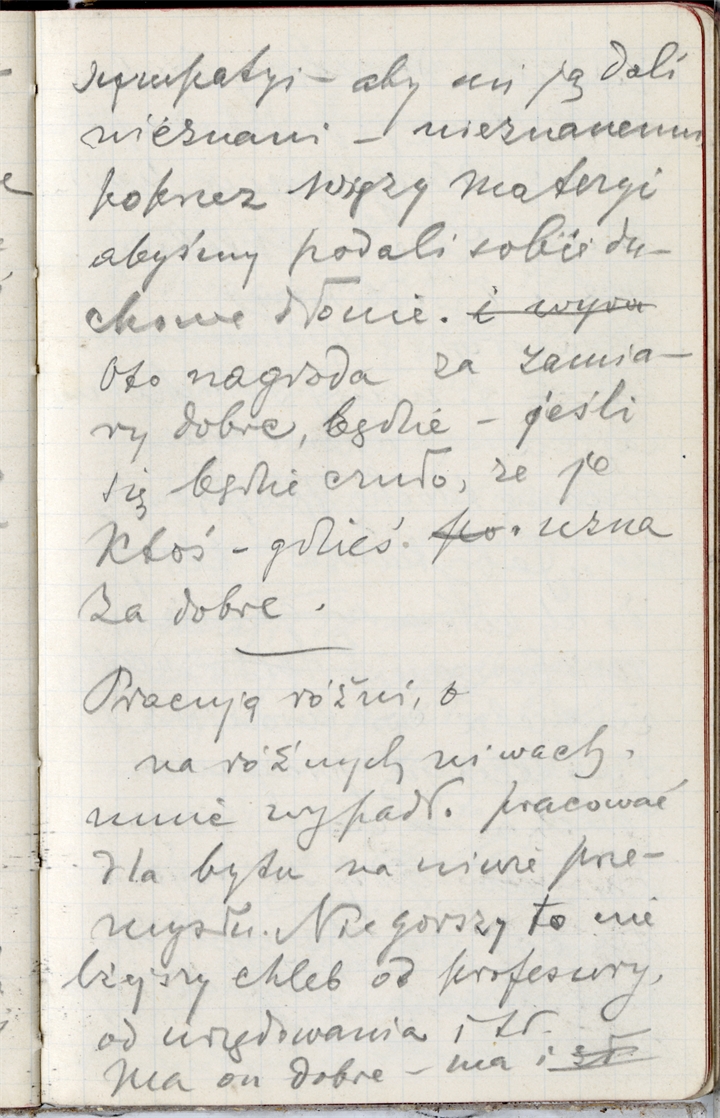 sympatyi – aby mi ją dali
nieznani – nieznanemu
poprzez więzy materyi
abyśmy podali sobie du-
chowe dłonie. i wyra
Oto nagroda za zamia-
ry dobre, będzie – jeśli
się będzie czuło, że je
Ktoś – gdzieś. po. uzna
za dobre.
Pracują różni, o
na różnych niwach,
mnie wypadł. pracować
dla bytu na niwie prze-
mysłu. Nie gorszy to nie
lżejszy chleb od profesury,
od urzędowania i td.
Ma on dobre – ma i zł.